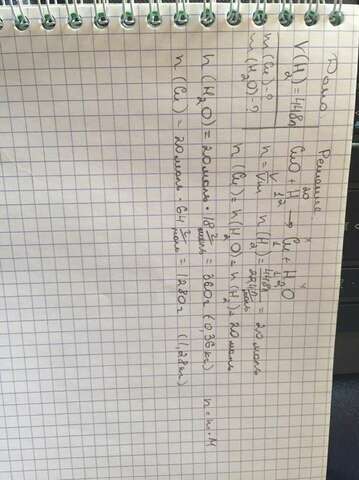 Дано:
V(H2)=448л
m(Cu)-?
m(H2O)-?
Решение.
20 x x
CuO + H2 → Cu + H2O
1 1 1
n = V/Vm n(H2) = 448л/22,4л/моль = 20 моль
n(Cu) = n(H2O) = n(H2) = 20 моль
n(H2O) = 20 моль · 18 г/моль = 360г (0,36кг) n = m · M
n(Cu) = 20 моль · 64 г/моль = 1280г (1,28кг)